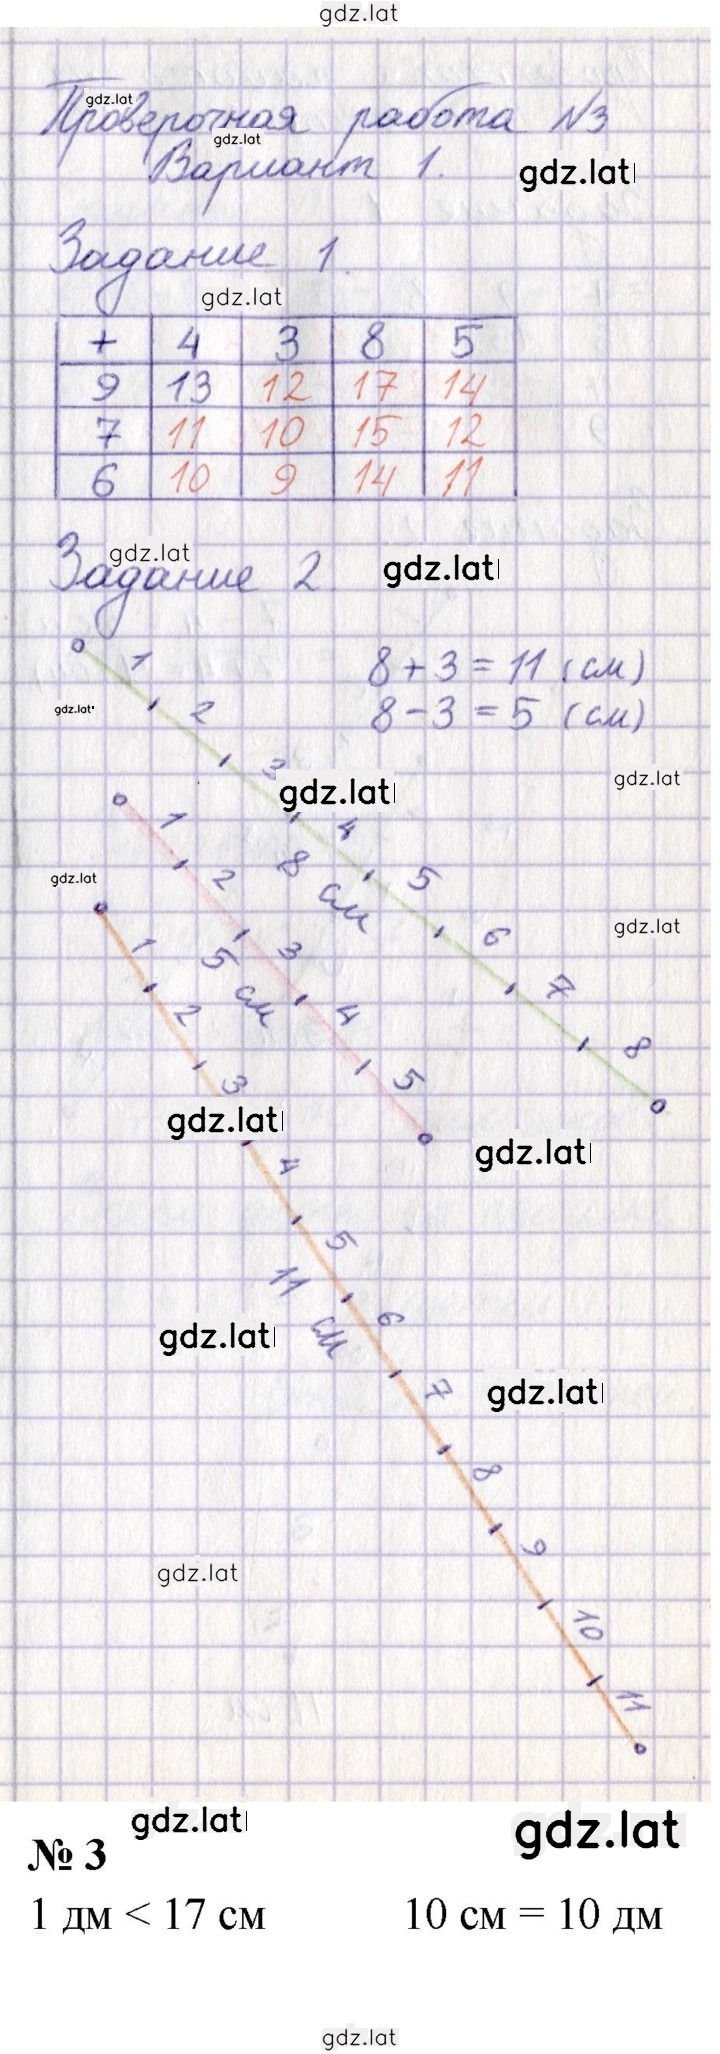 gdz.lat
gdz.lat
Проверочная работа №3
gdz.lat
Вариант 1.
gdz.lat
Задание 1.
gdz.lat
+ 4 3 8 5
9 13 12 17 14
7 11 10 15 12
6 10 9 14 11
gdz.lat
Задание 2
gdz.lat
8 + 3 = 11 (см)
8 - 3 = 5 (см)
gdz.lat
gdz.lat
gdz.lat
1 2 3 4 5 6 7 8
8 см
gdz.lat
gdz.lat
1 2 3 4 5
5 см
gdz.lat
gdz.lat
1 2 3 4 5 6 7 8 9 10 11
11 см
gdz.lat
gdz.lat
gdz.lat
gdz.lat
gdz.lat
№ 3
1 дм < 17 см 10 см = 10 дм
gdz.lat